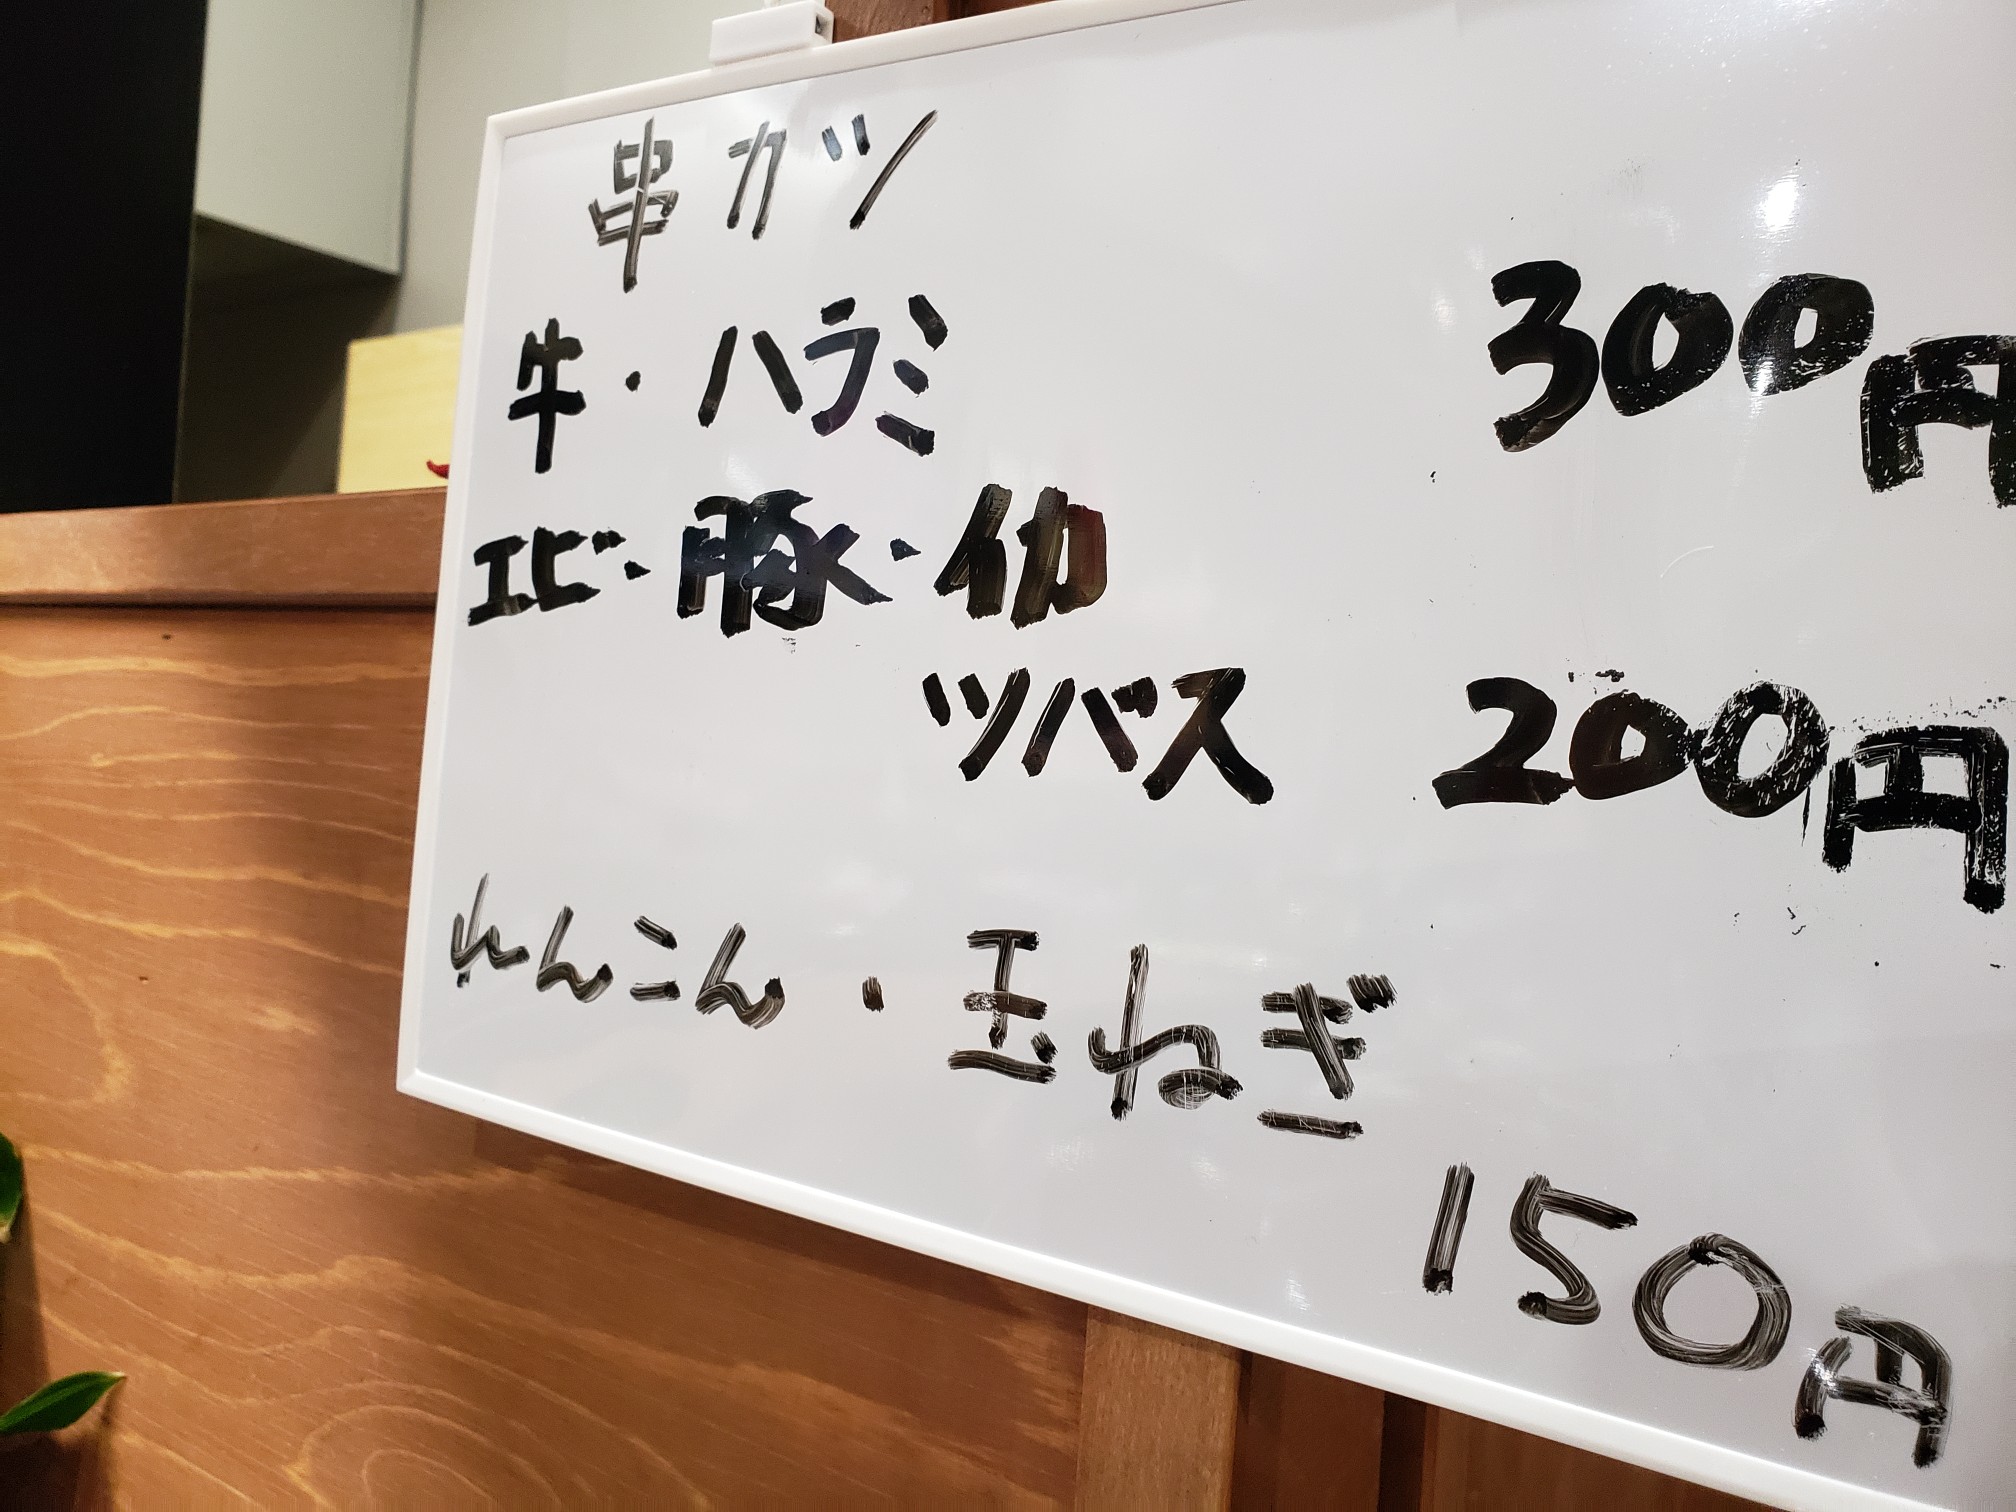 串カツ
牛・ハラミ 300円
エビ・豚・イカ
ツバス 200円
れんこん・玉ねぎ
150円